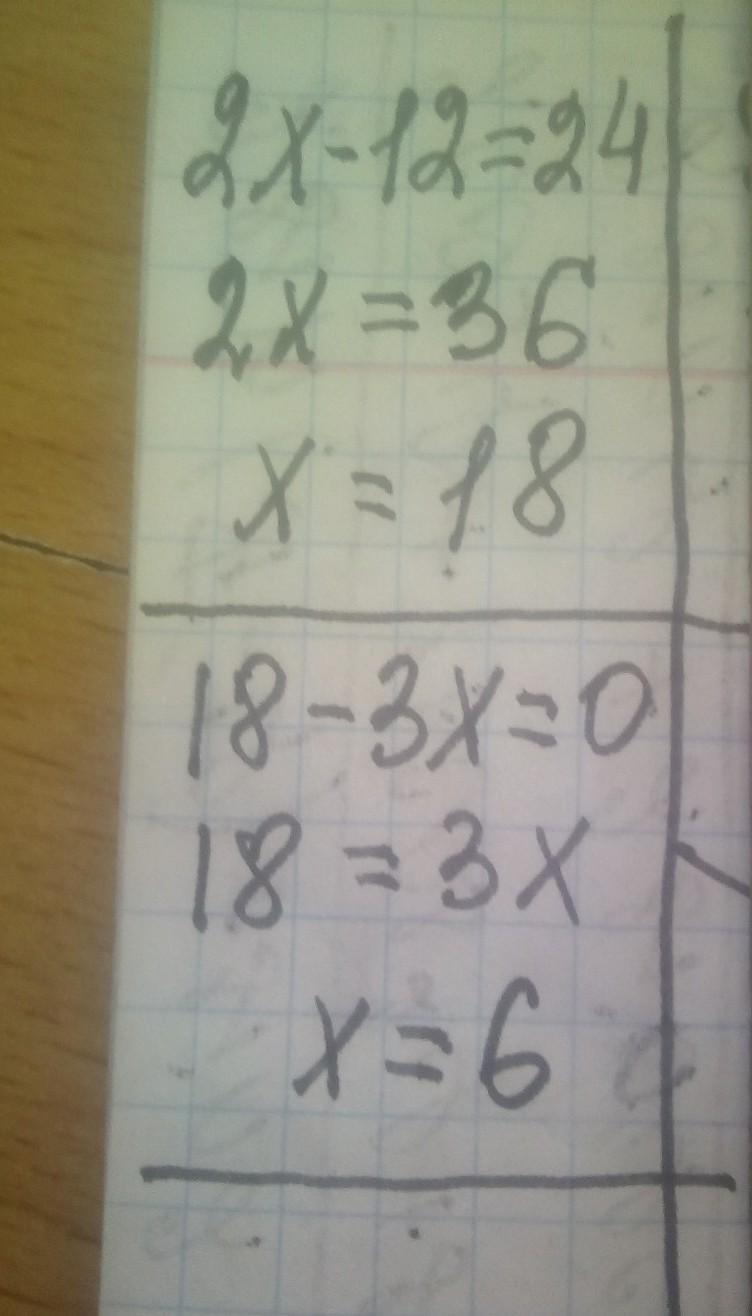 2x-12=24
2x=36
x=18
18-3x=0
18=3x
x=6